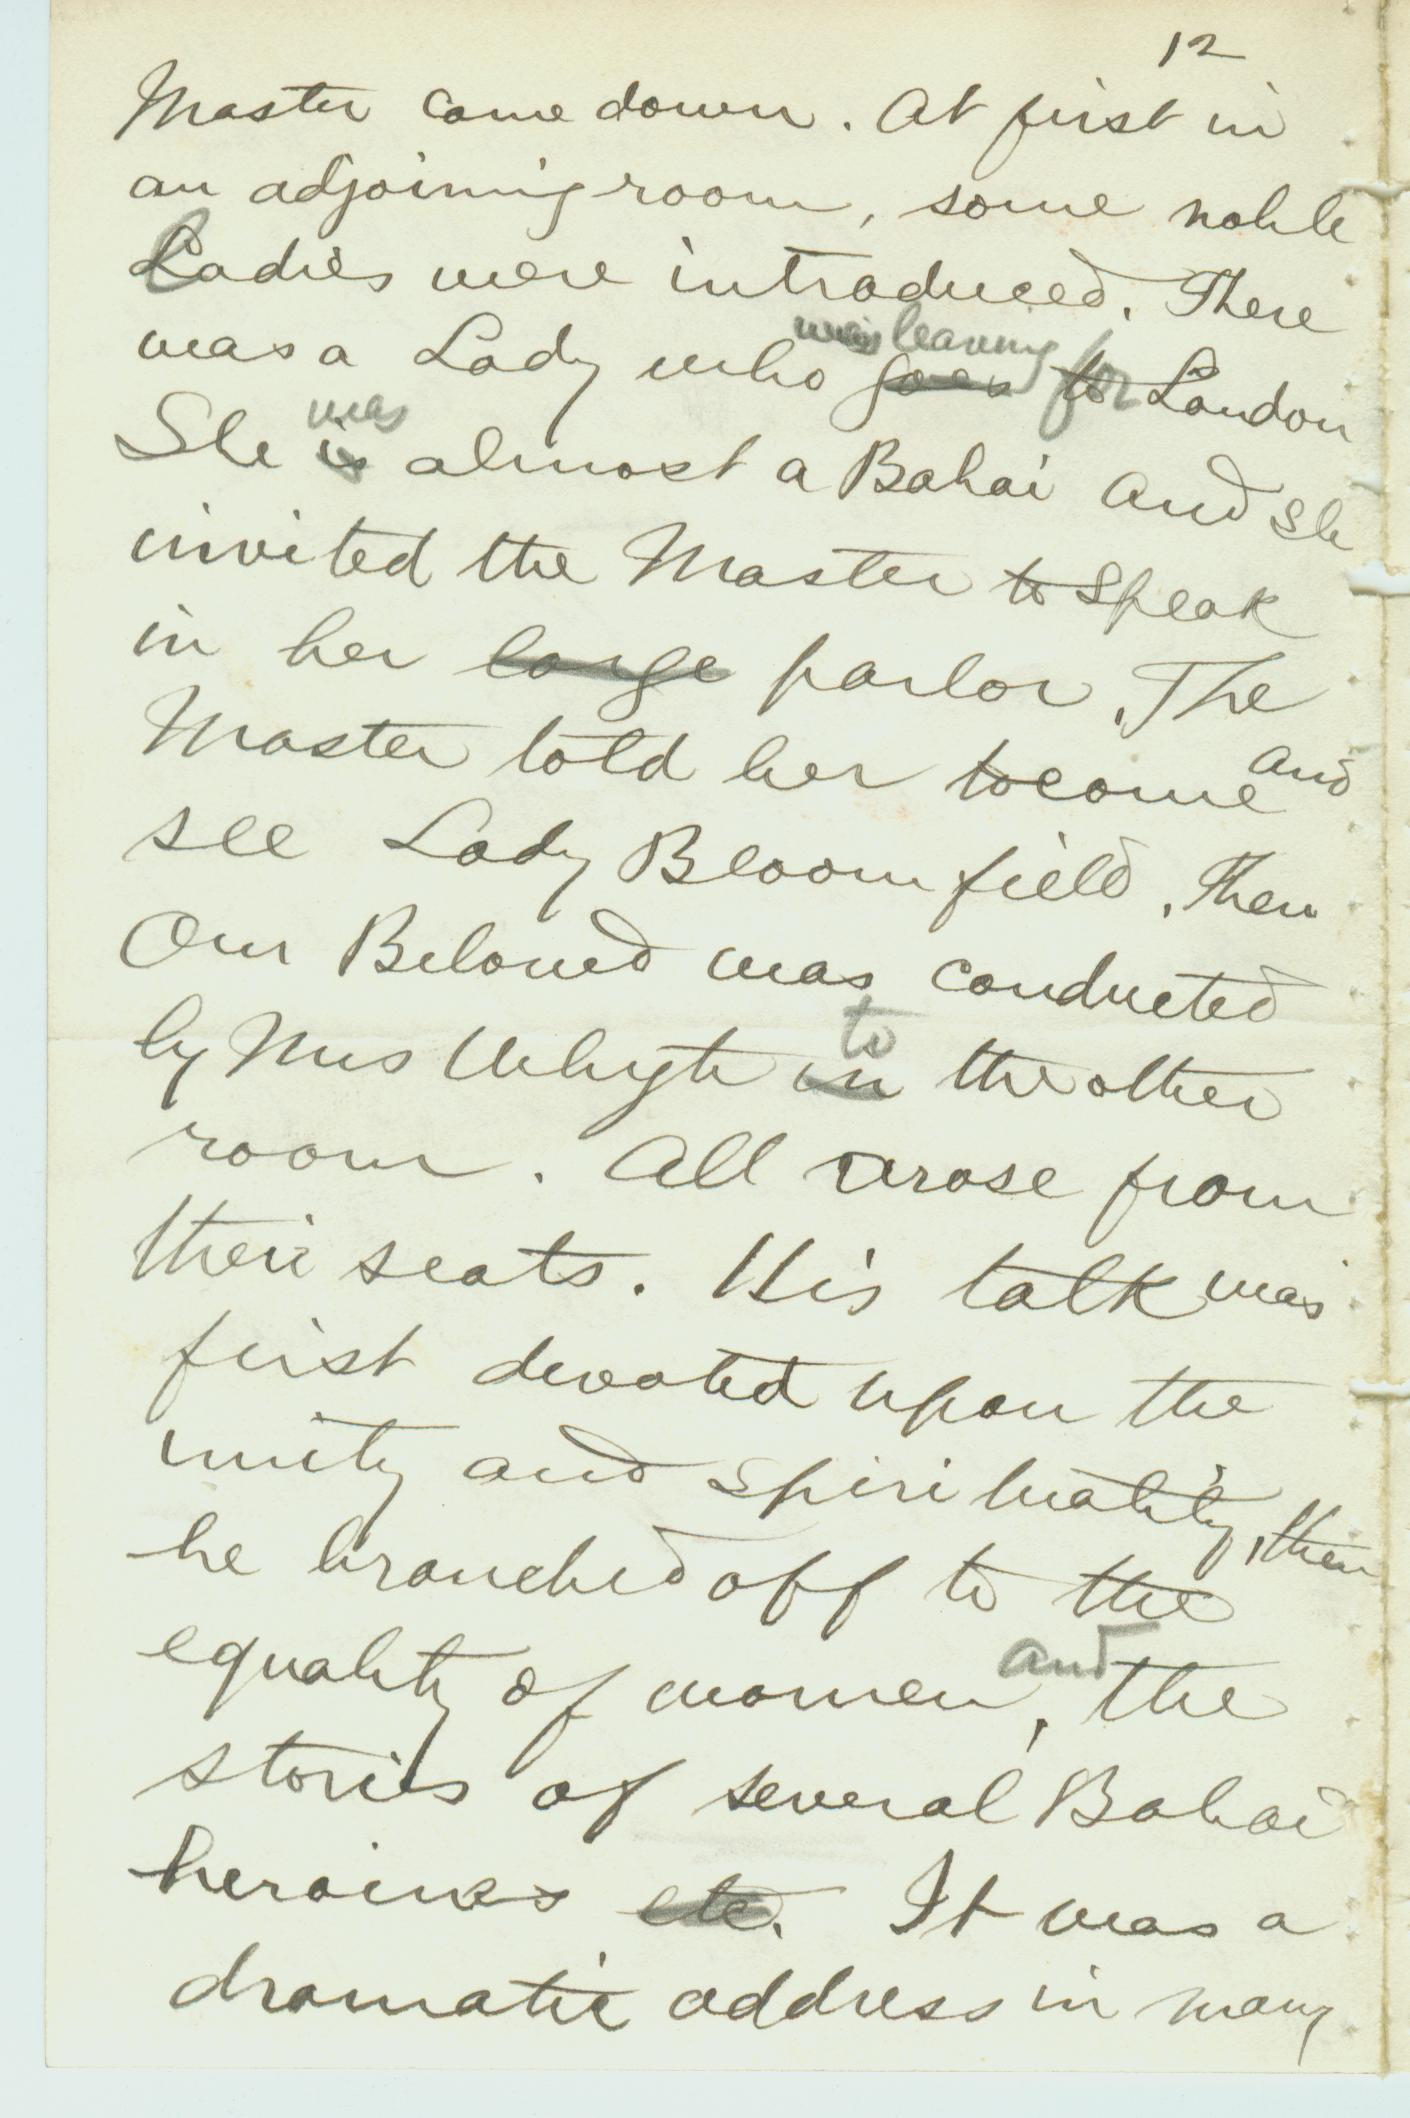 12
Master came down. At first in
an adjoining room, some noble
Ladies were introduced. There
was leaving for
was a Lady who goes to London
was
She is almost a Bahai and she
invited the Master to speak
in her large parlor. The
Master told her to come and
see Lady Bloomfield. Then
Our Beloved was conducted
to
by Mrs Whyte in the other
room. All arose from
their seats. His talk was
first devoted upon the
unity and spirituality, then
he branched off to the
and
equality of women, the
stories of several Bahai
heroines etc. It was a
dramatic address in many